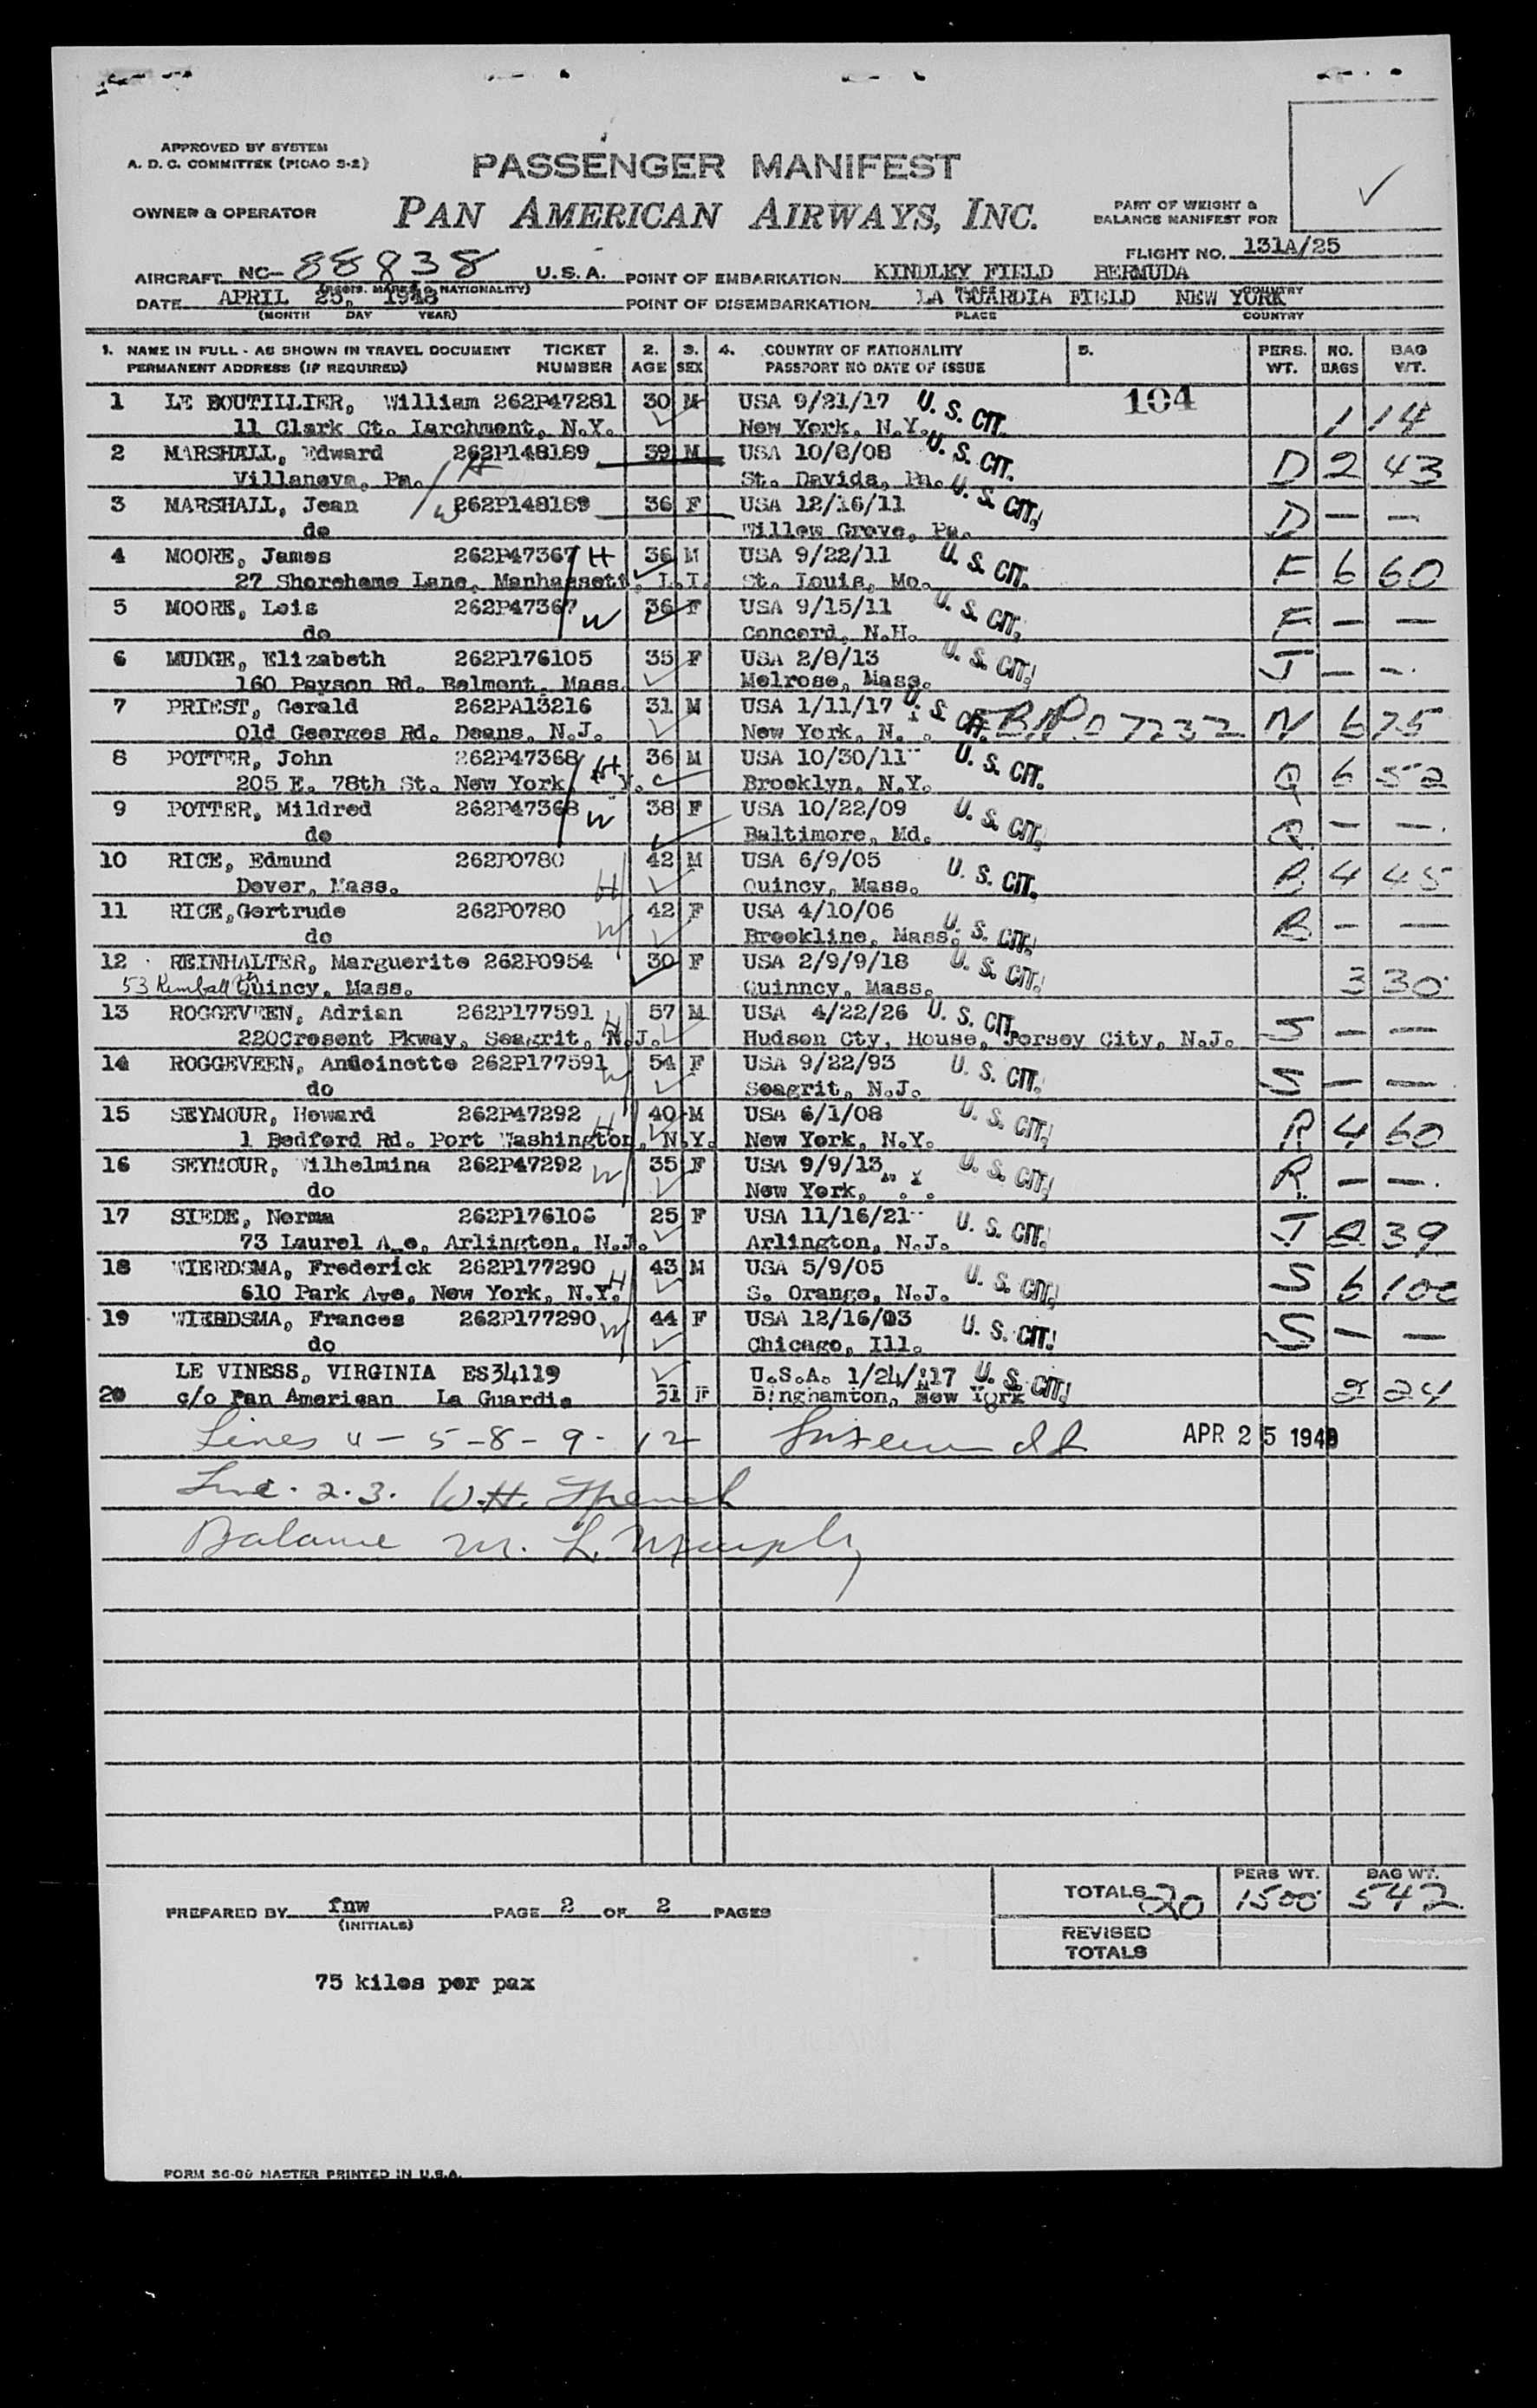 APPROVED BY SYSTEM
A. D. C. COMMITTEE (PICAO S-2)
PASSENGER MANIFEST
OWNER & OPERATOR PAN AMERICAN AIRWAYS, INC.
PART OF WEIGHT &
BALANCE MANIFEST FOR
FLIGHT NO. 131A/25
AIRCRAFT NC- 88838 U.S.A. POINT OF EMBARKATION KINDLEY FIELD BERMUDA
(REGIS. MARKS & NATIONALITY) PLACE COUNTRY
DATE APRIL 25, 1948 POINT OF DISEMBARKATION LA GUARDIA FIELD NEW YORK
(MONTH DAY YEAR) PLACE COUNTRY
1. NAME IN FULL - AS SHOWN IN TRAVEL DOCUMENT TICKET 2. 3. 4. COUNTRY OF NATIONALITY 5. PERS. NO. BAG
PERMANENT ADDRESS (IF REQUIRED) NUMBER AGE SEX PASSPORT NO DATE OF ISSUE WT. BAGS WT.
104
1 LE BOUTILLIER, William 262P47281 30 M USA 9/21/17 U. S. CIT. 1 14
11 Clark Ct. Larchmont, N.Y. New York, N.Y.
2 MARSHALL, Edward 262P148189 39 M USA 10/8/08 U. S. CIT. D 2 43
Villanova, Pa. H St. Davids, Pa.
3 MARSHALL, Jean 262P148189 36 F USA 12/16/11 U. S. CIT. D — —
do W Willow Grove, Pa.
4 MOORE, James 262P47367 H 36 M USA 9/22/11 U. S. CIT. F 6 60
27 Shorehame Lane, Manhassett, L.I. St. Louis, Mo.
5 MOORE, Lois 262P47367 W 36 F USA 9/15/11 U. S. CIT. F — —
do Concord, N.H.
6 MUDGE, Elizabeth 262P176105 35 F USA 2/8/13 U. S. CIT. J — —
160 Payson Rd. Belmont, Mass. Melrose, Mass.
7 PRIEST, Gerald 262PA13216 31 M USA 1/11/17 U. S. CIT. 07232 N 6 75
Old Georges Rd. Deans, N.J. New York, N.
8 POTTER, John 262P47368 H 36 M USA 10/30/11 U. S. CIT. Q 6 52
205 E. 78th St. New York, Y. Brooklyn, N.Y.
9 POTTER, Mildred 262P47368 W 38 F USA 10/22/09 U. S. CIT. Q — —
do Baltimore, Md.
10 RICE, Edmund 262P0780 H 42 M USA 6/9/05 U. S. CIT. B 4 45
Dover, Mass. Quincy, Mass.
11 RICE,Gertrude 262P0780 W 42 F USA 4/10/06 U. S. CIT. B — —
do Brookline, Mass.
12 REINHALTER, Marguerite 262P0954 30 F USA 2/9/9/18 U. S. CIT. 3 30
53 Kimball Quincy, Mass. Quinncy, Mass.
13 ROGGEVEEN, Adrian 262P177591 H 57 M USA 4/22/26 U. S. CIT. S — —
220Cresent Pkway, Seagrit, N.J. Hudson Cty, House, Jersey City, N.J.
14 ROGGEVEEN, Antoinette 262P177591 W 54 F USA 9/22/93 U. S. CIT. S — —
do Seagrit, N.J.
15 SEYMOUR, Howard 262P47292 H 40 M USA 6/1/08 U. S. CIT. R 4 60
1 Bedford Rd. Port Washington, N.Y. New York, N.Y.
16 SEYMOUR, Wilhelmina 262P47292 W 35 F USA 9/9/13 U. S. CIT. R — —
do New York,
17 SIEDE, Norma 262P176106 25 F USA 11/16/21 U. S. CIT. J 2 39
73 Laurel Ave, Arlington, N.J. Arlington, N.J.
18 WIERDSMA, Frederick 262P177290 H 43 M USA 5/9/05 U. S. CIT. S 6 100
610 Park Ave, New York, N.Y. S. Orange, N.J.
19 WIERDSMA, Frances 262P177290 W 44 F USA 12/16/03 U. S. CIT. S — —
do Chicago, Ill.
LE VINESS, VIRGINIA ES34119 U.S.A. 1/24/17 U. S. CIT.
20 c/o Pan American La Guardia 31 F Binghamton, New York 2 24
Lines 4 - 5 - 8 - 9 - 12 APR 25 1948
Line. 2.3. W.H.
Balance M. L. Murphy
TOTALS 20 PERS WT. 1500 BAG WT. 542
PREPARED BY fnw PAGE 2 OF 2 PAGES
(INITIALS)
REVISED
TOTALS
75 kilos per pax
FORM 36-00 MASTER PRINTED IN U.S.A.